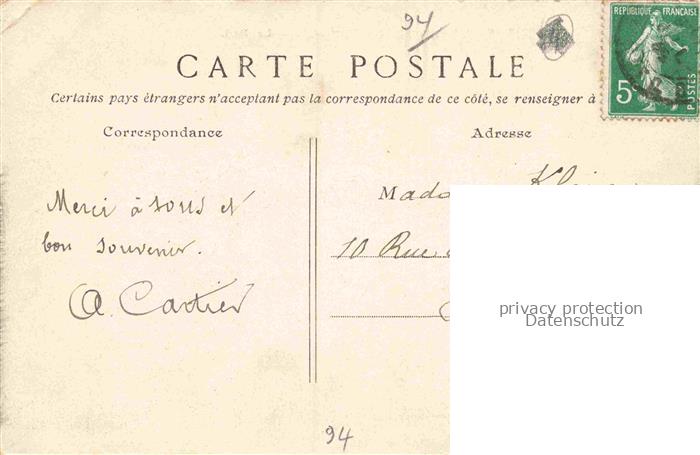 94
RÉPUBLIQUE FRANÇAISE
5c
POSTES
CARTE POSTALE
Certains pays étrangers n'acceptant pas la correspondance de ce côté, se renseigner à
Correspondance
Adresse
Merci à tous et
bon souvenir.
A. Cartier
Mad
10 Rue
privacy protection
Datenschutz
94